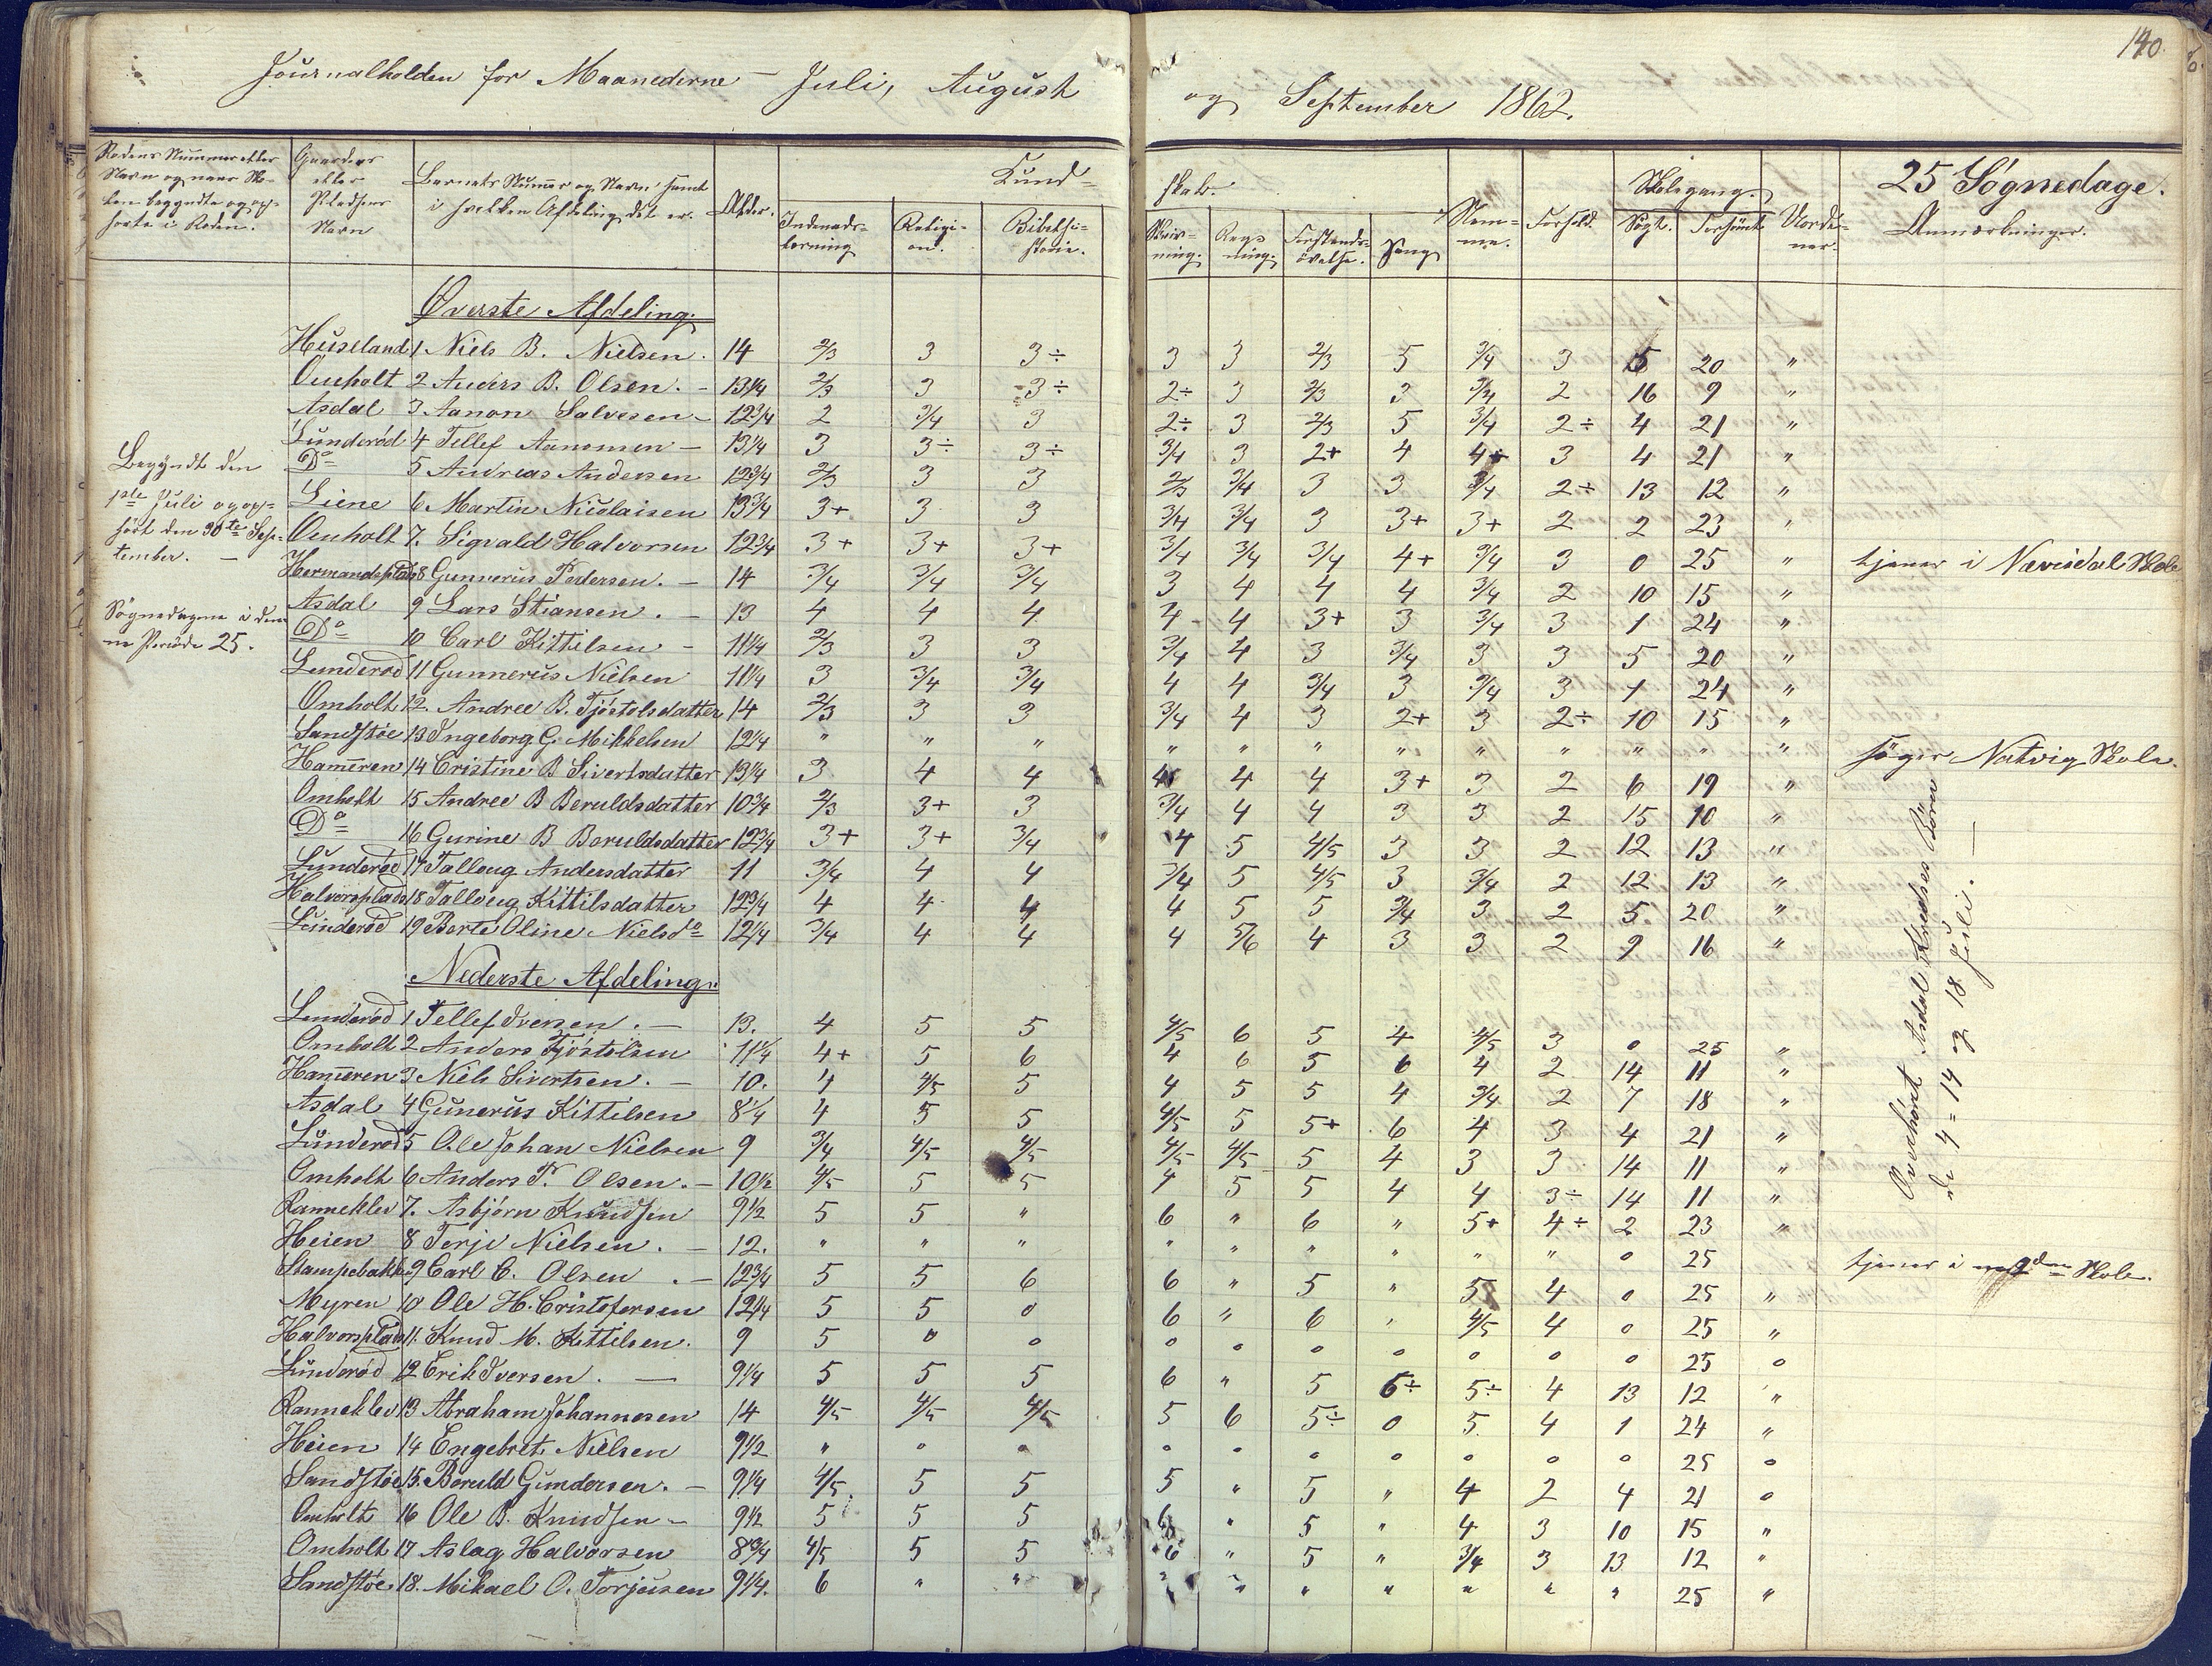 140.
Journalholden for Maanederne - Juli, August og September 1862.
Rodens Nummer eller Navn og naar Skolen begyndte og ophørte i Roden.
Gaardens eller Pladsens Navn
Barnets Nummer og Navn samt i hvilken Afdeling det er.
Alder.
Kundskab.
Indenadslæsning
Religion.
Bibelhistorie.
Skrivning.
Regning.
Forstandsøvelse.
Sang
Nemme.
Forhold.
Skolegang.
Søgt.
Forsømt
Uordener.
25 Søgnedage.
Anmærkninger.
Øverste Afdeling.
Huseland 1 Niels B. Nielsen. 14 2/3 3 3÷ 3 3 2/3 5 3/4 3 5 20 "
Omholt 2 Anders B. Olsen. - 13 1/4 2/3 3 3÷ 2÷ 3 2/3 3 3/4 2 16 9 "
Asdal 3 Aanon Salvesen - 12 3/4 2 3/4 3 2÷ 3 2/3 5 3/4 2÷ 4 21 "
Lunderød 4 Tellef Aanonsen - 13 1/4 3 3÷ 3÷ 3/4 3 2+ 4 4+ 3 4 21 "
Do 5 Andreas Andersen 12 3/4 2/3 3 3 2/3 3/4 3 3 3/4 2÷ 13 12 "
Liene 6 Martin Nicolaisen 13 3/4 3+ 3 3 3/4 3/4 3 3+ 3+ 2 2 23 "
Omholt 7. Sigvald Halvorsen 12 3/4 3+ 3+ 3+ 3/4 3/4 3/4 4+ 3/4 3 0 25 " tjener i Nævisdal Skole
Hermandsplads 8 Gunnerus Pedersen. - 14 3/4 3/4 3/4 3 4 4 4 3/4 2 10 15 "
Asdal 9 Lars Stiansen. - 13 4 4 4 4 4 3+ 3 3/4 3 1 24 "
Do 10 Carl Kittilsen - 11 1/4 2/3 3 3 3/4 4 3 3/4 3 3 5 20 "
Lunderød 11 Gunnerus Nielsen 11 1/4 3 3/4 3/4 4 4 3/4 3 3/4 3 1 24 "
Omholt 12. Andree B. Tjöstolsdatter 14 2/3 3 3 3/4 4 3 2+ 3 2÷ 10 15 "
Sandstøe 13 Ingeborg G. Mikkelsen 12 1/4 " " " " " " " " " " " " søger Natvig Skole.
Hameren 14 Cristine B Sivertsdatter 13 1/4 3 4 4 4 4 4 3+ 3 2 6 19 "
Omholt 15 Andree B Beruldsdatter 10 3/4 2/3 3+ 3 3/4 4 4 3 3 2 15 10 "
Do 16 Gurine B Beruldsdatter 12 3/4 3+ 3+ 3/4 4 5 4/5 3 3 2 12 13 "
Lunderød 17 Talloug Andersdatter 11 3/4 4 4 3/4 5 4/5 3 3/4 2 12 13 "
Halvorsplads 18 Talloug Kittilsdatter 12 3/4 4 4 4 4 5 5 3/4 3 2 5 20 "
Lunderød 19 Berte Oline Nielsdo 12 1/4 3/4 4 4 4 5/6 4 3 3 2 9 16 "
Begyndt den
1ste Juli og op-
hört den 30te Sep-
tember. -
Søgnedagene i den-
ne Periode 25.
Nederste Afdeling.
Lunderød 1 Tellef Iversen. - 13. 4 5 5 4/5 6 5 4 4/5 3 0 25 "
Omholt 2 Anders Tjöstolsen 11 1/4 4+ 5 6 4 6 5 6 4 2 14 11 "
Hameren 3 Niels Sivertsen. - 10. 4 4/5 5 4 5 5 4 3/4 2 7 18 "
Asdal 4 Gunerus Kittilsen 8 1/4 4 5 5 4/5 5 5+ 6 4 3 4 21 "
Lunderød 5 Ole Johan Nielsen 9 3/4 4/5 4/5 4/5 4/5 5 4 3 3 14 11 "
Omholt 6 Anders T. Olsen. - 10 1/2 4/5 5 5 4 5 5 4 4 3÷ 14 11 "
Ranneklev 7. Asbjörn Knudsen 9 1/2 5 5 " 6 " 6 " 5+ 4÷ 2 23 "
Heien 8 Terje Nielsen. - 12. " " " " " " " " " 0 25 tjener i Skole.
Stampebakken 9 Carl C. Olsen. - 12 3/4 5 5 6 6 " 5 " 5 4 0 25 "
Myren 10 Ole H. Cristofersen 12 1/4 5 5 0 6 " 6 " 4/5 4 0 25 "
Halvorsplads 11. Knud M. Kittilsen. 9 5 0 0 0 0 0 0 0 0 0 25 0
Lunderød 12 Erik Iversen. - 9 1/4 5 5 5 6 " 5 6÷ 5÷ 4 13 12 "
Ranneklev 13 Abraham Johannesen 14 4/5 4/5 4/5 5 6 5÷ 0 5 4 1 24 "
Heien 14 Engebret Nielsen 9 1/2 " 0 0 0 0 0 0 0 0 0 25 0
Sandstøe 15. Beruld Gundersen. - 9 1/4 4/5 5 5 5 " 5 " 4 2 4 21 0
Omholt 16 Ole B. Knudsen - 9 1/2 5 5 5 6 " 5 " 4 3 10 15 "
Omholt 17 Aslag Halvorsen 8 3/4 4/5 5 5 6 " 5 " 3/4 3 13 12 "
Sandstøe 18. Mikael O. Torjusen 9 1/4. 6 " " " " " " " " " 25 "
Overhørt Asdal Kredses Børn
d. 4 = 14 og 18 Juli. -